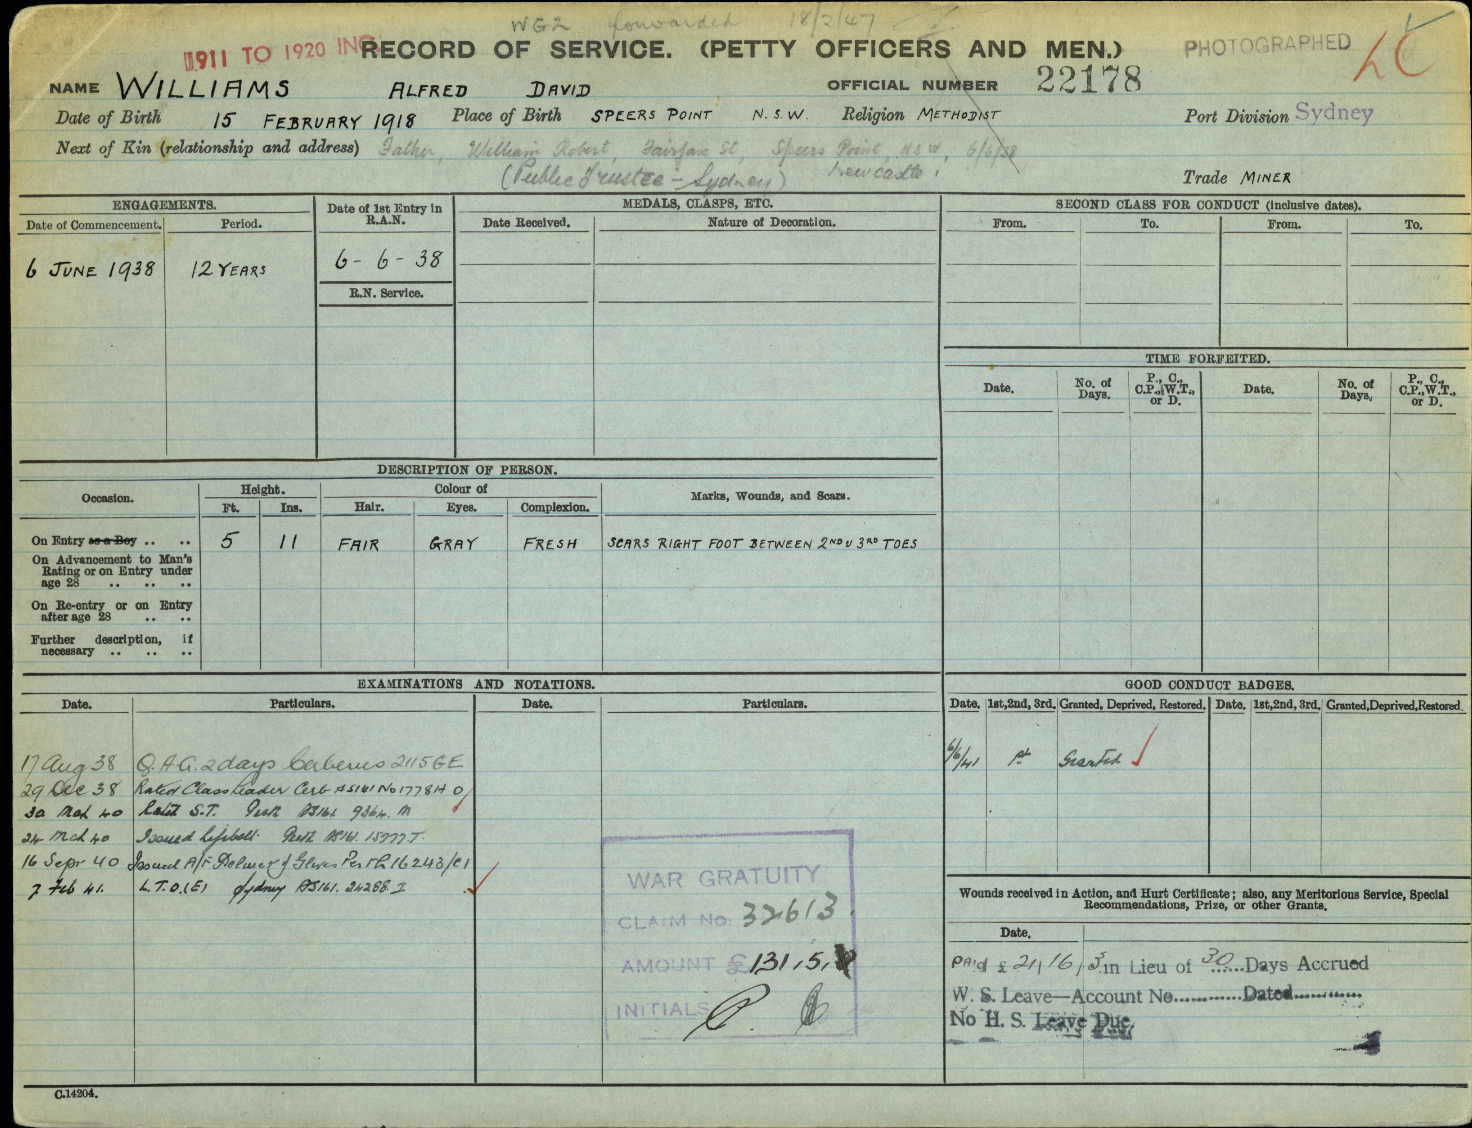 WG2 forwarded 18/2/47
1911 TO 1920 INC
RECORD OF SERVICE. (PETTY OFFICERS AND MEN.)
PHOTOGRAPHED
NAME WILLIAMS ALFRED DAVID OFFICIAL NUMBER 22178
Date of Birth 15 FEBRUARY 1918 Place of Birth SPEERS POINT N.S.W. Religion METHODIST Port Division Sydney
Next of Kin (relationship and address) Father, William Robert, Fairfax St, Speers Point, N.S.W, 6/6/38
(Public Trustee - Sydney) Newcastle
Trade MINER
ENGAGEMENTS. Date of 1st Entry in R.A.N. MEDALS, CLASPS, ETC. SECOND CLASS FOR CONDUCT (inclusive dates).
Date of Commencement. Period. Date Received. Nature of Decoration. From. To. From. To.
6 JUNE 1938 12 YEARS 6 - 6 - 38
R.N. Service.
TIME FORFEITED.
Date. No. of Days. P., C., C.P., W.T., or D. Date. No. of Days. P., C., C.P., W.T., or D.
DESCRIPTION OF PERSON.
Occasion. Height. Colour of Marks, Wounds, and Scars.
Ft. Ins. Hair. Eyes. Complexion.
On Entry as a Boy .. .. 5 11 FAIR GRAY FRESH SCARS RIGHT FOOT BETWEEN 2ND & 3RD TOES
On Advancement to Man's
Rating or on Entry under
age 28 .. .. ..
On Re-entry or on Entry
after age 28 .. ..
Further description, if
necessary .. .. ..
EXAMINATIONS AND NOTATIONS. GOOD CONDUCT BADGES.
Date. Particulars. Date. Particulars. Date. 1st, 2nd, 3rd. Granted, Deprived, Restored. Date. 1st, 2nd, 3rd. Granted, Deprived, Restored.
6/6/41 1st Granted
17 Aug 38 Q.A.G. 2 days Cerberus 2115 GE
29 Dec 38 Rated Class Leader Cert AS161 No 1778H O
30 Mch 40 Rated S.T. Perth AS161 9364. M
24 Mch 40 Issued Lifebelt. Perth AS161. 15777 T.
16 Sepr 40 Issued A/F Helmet & Gloves Perth 16243/C1
7 Feb 41. L.T.O.(E) Sydney AS161. 24288. I
WAR GRATUITY
CLAIM No. 32613
AMOUNT £131.5.
INITIALS
Wounds received in Action, and Hurt Certificate; also, any Meritorious Service, Special
Recommendations, Prize, or other Grants.
Date.
PAID £ 21/16/3 in Lieu of 30 Days Accrued
W. S. Leave—Account No............ Dated............
No H. S. Leave Due.
C.14204.